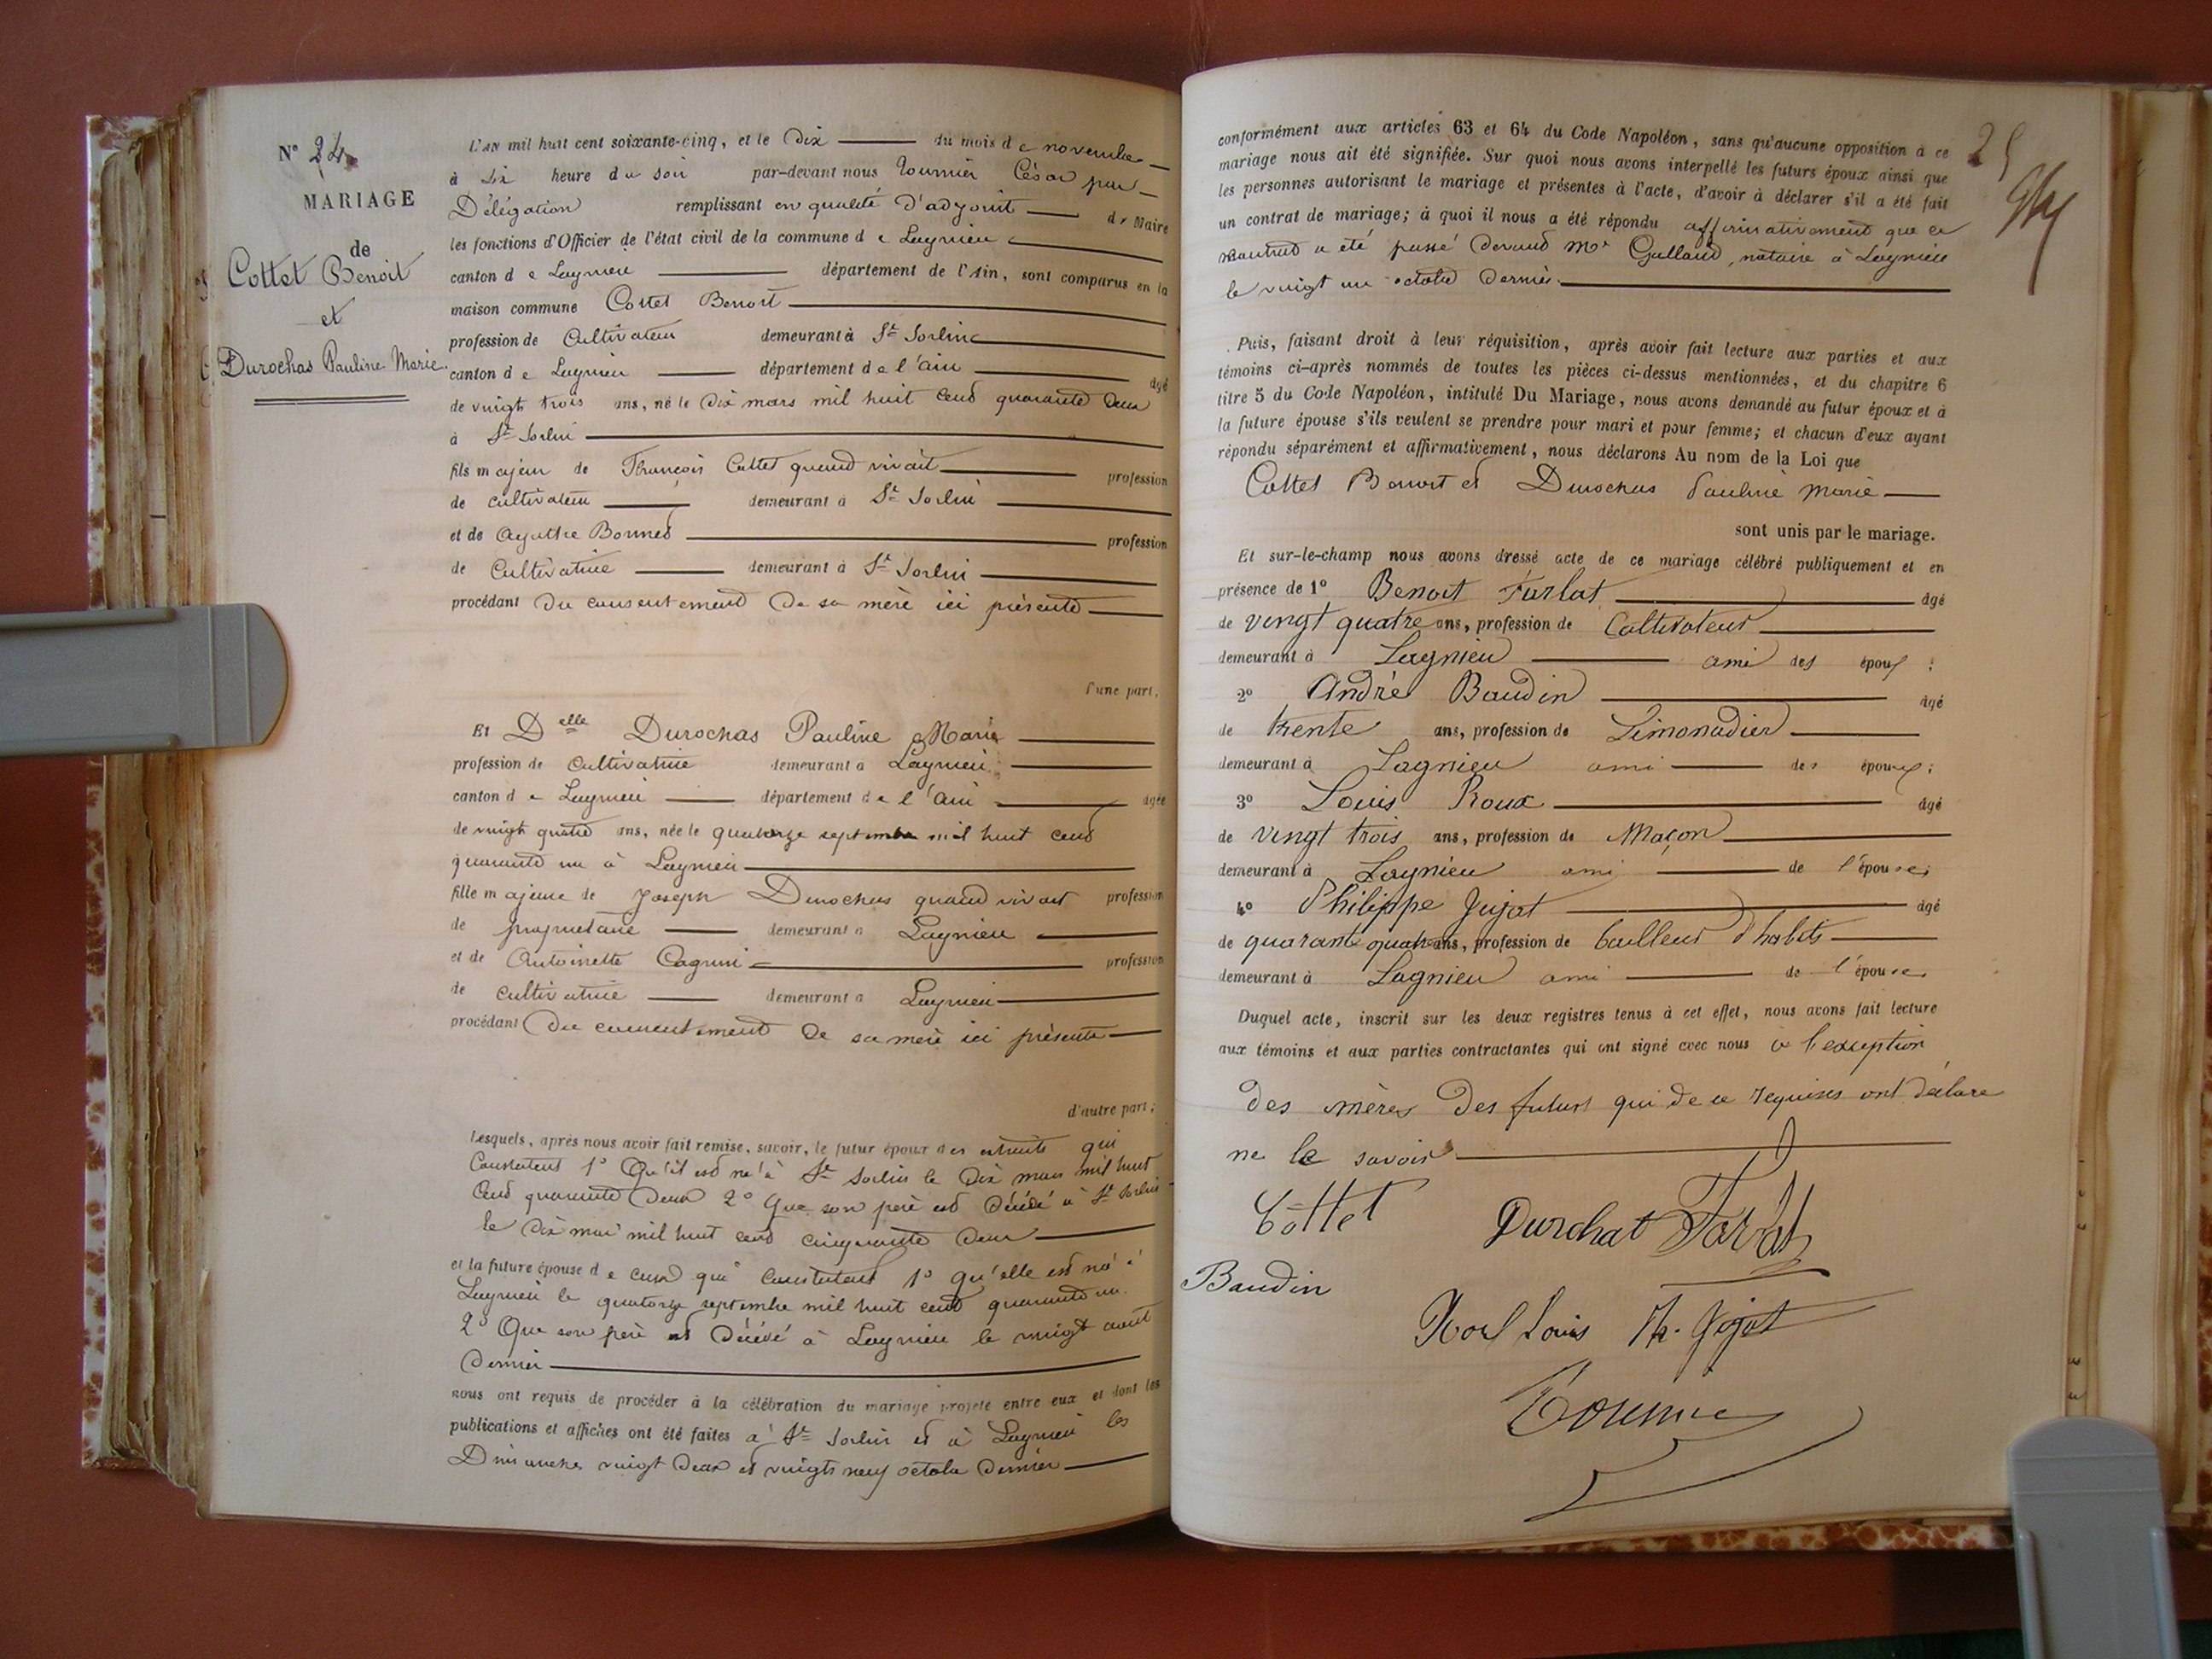 N° 24
MARIAGE
de
Cottet Benoit
et
Durochas Pauline Marie.
L'AN mil huit cent soixante-cinq, et le Dix du mois de novembre
à six heure du soir par-devant nous Tournier César par
Délégation remplissant en qualité d'adjoint de Maire
les fonctions d'Officier de l'état civil de la commune de Lagnieu
canton de Lagnieu département de l'Ain, sont comparus en la
maison commune Cottet Benoit
profession de Cultivateur demeurant à St Sorlin
canton de Lagnieu département de l'Ain âgé
de vingt trois ans, né le dix mars mil huit cent quarante deux
à St Sorlin
fils majeur de François Cottet quand vivait profession
de cultivateur demeurant à St Sorlin
et de Agathe Bonnet profession
de Cultivatrice demeurant à St Sorlin
procédant du consentement de sa mère ici présente
d'une part,
Et Delle Durochas Pauline Marie
profession de Cultivatrice demeurant à Lagnieu
canton de Lagnieu département de l'Ain âgée
de vingt quatre ans, née le quatorze septembre mil huit cent
quarante un à Lagnieu
fille majeure de Joseph Durochas quand vivait profession
de propriétaire demeurant à Lagnieu
et de Antoinette profession
de cultivatrice demeurant à Lagnieu
procédant du consentement de sa mère ici présente
d'autre part;
Lesquels, après nous avoir fait remise, savoir, le futur époux des extraits qui
Constatent 1° Qu'il est né à St Sorlin le Dix mars mil huit
Cent quarante deux 2° Que son père est décédé à St Sorlin
le dix mai mil huit cent cinquante deux
et la future épouse de ceux qui constatent 1° qu'elle est née à
Lagnieu le quatorze septembre mil huit cent quarante un.
2° Que son père est décédé à Lagnieu le vingt aout
Dernier
nous ont requis de procéder à la célébration du mariage projeté entre eux et dont les
publications et affiches ont été faites à St Sorlin et à Lagnieu les
Dimanches vingt deux et vingt neuf octobre dernier
25
conformément aux articles 63 et 64 du Code Napoléon, sans qu'aucune opposition à ce
mariage nous ait été signifiée. Sur quoi nous avons interpellé les futurs époux ainsi que
les personnes autorisant le mariage et présentes à l'acte, d'avoir à déclarer s'il a été fait
un contrat de mariage; à quoi il nous a été répondu affirmativement que ce
contrat a été passé devant Me Galland, notaire à Lagnieu
le vingt un octobre dernier.
Puis, faisant droit à leur réquisition, après avoir fait lecture aux parties et aux
témoins ci-après nommés de toutes les pièces ci-dessus mentionnées, et du chapitre 6
titre 5 du Code Napoléon, intitulé Du Mariage, nous avons demandé au futur époux et à
la future épouse s'ils veulent se prendre pour mari et pour femme; et chacun d'eux ayant
répondu séparément et affirmativement, nous déclarons Au nom de la Loi que
Cottet Benoit et Durochas Pauline Marie
sont unis par le mariage.
Et sur-le-champ nous avons dressé acte de ce mariage célébré publiquement et en
présence de 1° Benoit Farlat âgé
de vingt quatre ans, profession de Cultivateur
demeurant à Lagnieu ami des époux;
2° André Baudin âgé
de trente ans, profession de Limonadier
demeurant à Lagnieu ami des époux;
3° Louis Roux âgé
de vingt trois ans, profession de Maçon
demeurant à Lagnieu ami de l'épouse;
4° Philippe Jujat âgé
de quarante quatre ans, profession de tailleur d'habits
demeurant à Lagnieu ami de l'épouse
Duquel acte, inscrit sur les deux registres tenus à cet effet, nous avons fait lecture
aux témoins et aux parties contractantes qui ont signé avec nous à l'exception
des mères des futurs qui de ce requises ont déclaré
ne le savoir
Cottet Durchat Farlat
Baudin
Louis Ph. Jujat